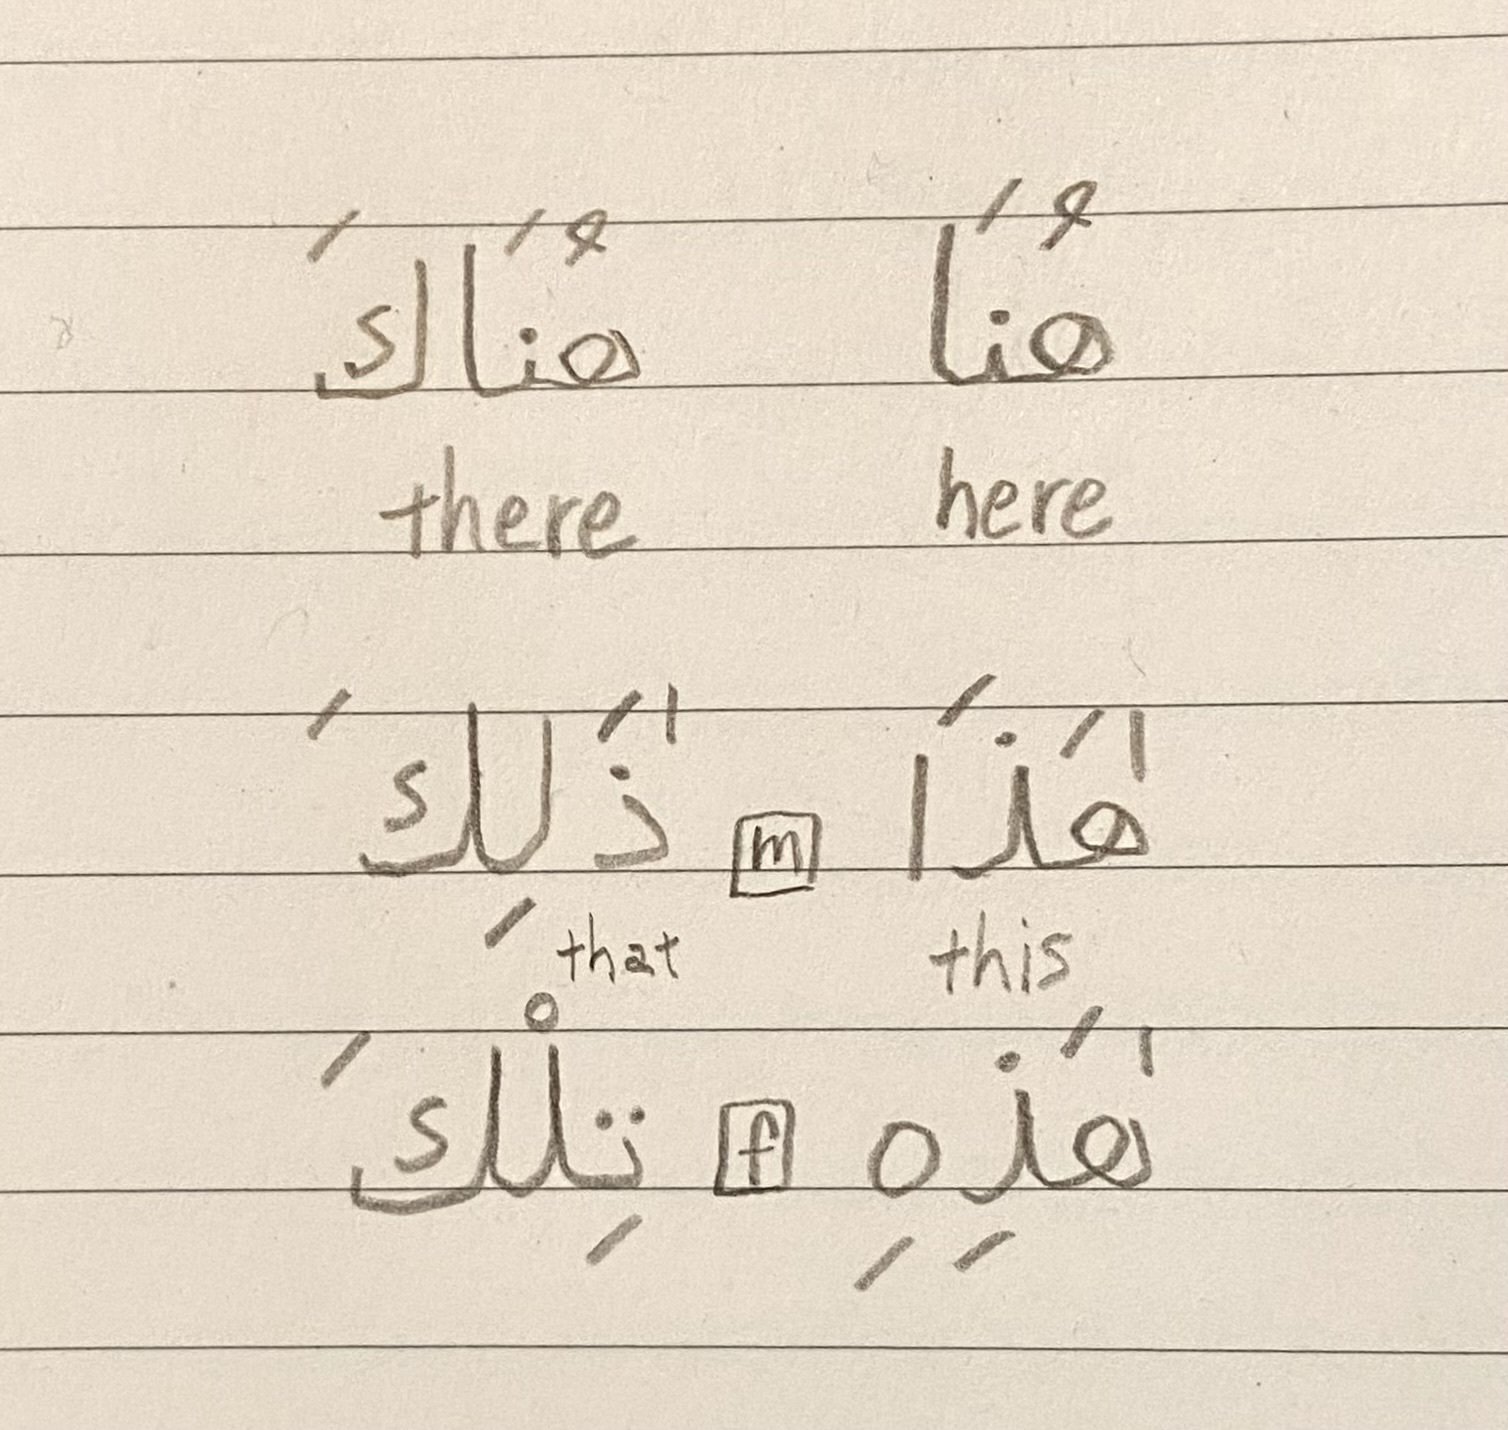 هُنَا هُنَاكَ
here there
هٰذَا m ذٰلِكَ
this that
هٰذِهِ f تِلْكَ